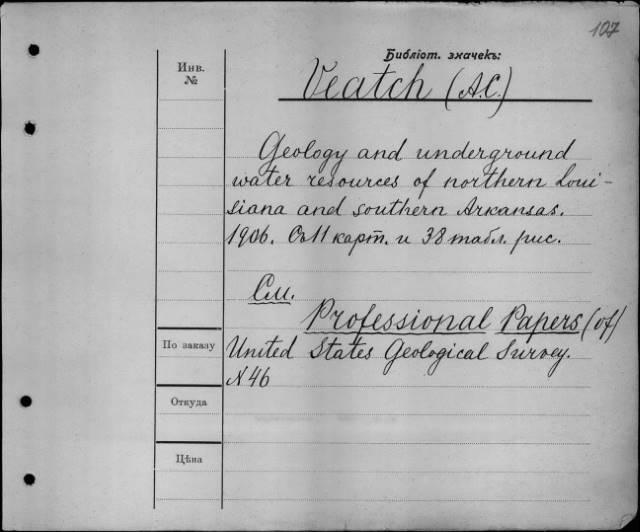 107
Библіот. значекъ:
Инв.
№
Veatch (A.C.)
Geology and underground
water resources of northern Loui-
siana and southern Arkansas.
1906. Съ 11 карт. и 38 табл. рис.
См.
Professional Papers (of)
По заказу
United States Geological Survey.
N 46
Откуда
Цѣна